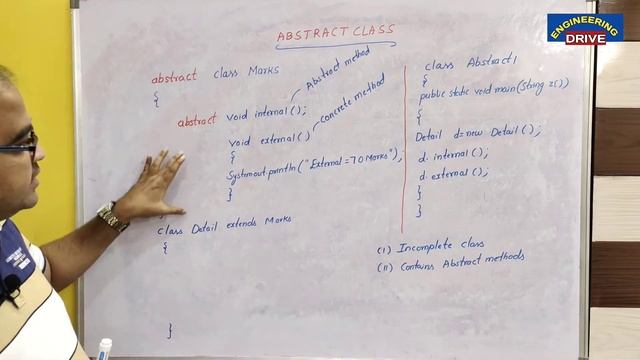 ENGINEERING
DRIVE
ABSTRACT CLASS
abstract class Marks
{
abstract void internal();
Abstract method
void external()
Concrete method
{
System.out.println("External=70 Marks");
}
class Detail extends Marks
{
}
class Abstract1
{
public static void main(String z[])
{
Detail d=new Detail();
d.internal();
d.external();
}
}
(I) Incomplete class
(II) Contains Abstract methods